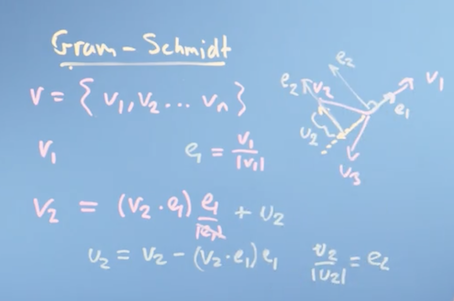 Gram - Schmidt
v = { v₁, v₂ ... vₙ }
v₁ e₁ = v₁/|v₁|
v₂ = (v₂·e₁) e₁/|e₁| + u₂
u₂ = v₂ - (v₂·e₁) e₁ u₂/|u₂| = e₂
e₂
e₂ v₂ v₁
e₁
u₂
v₃